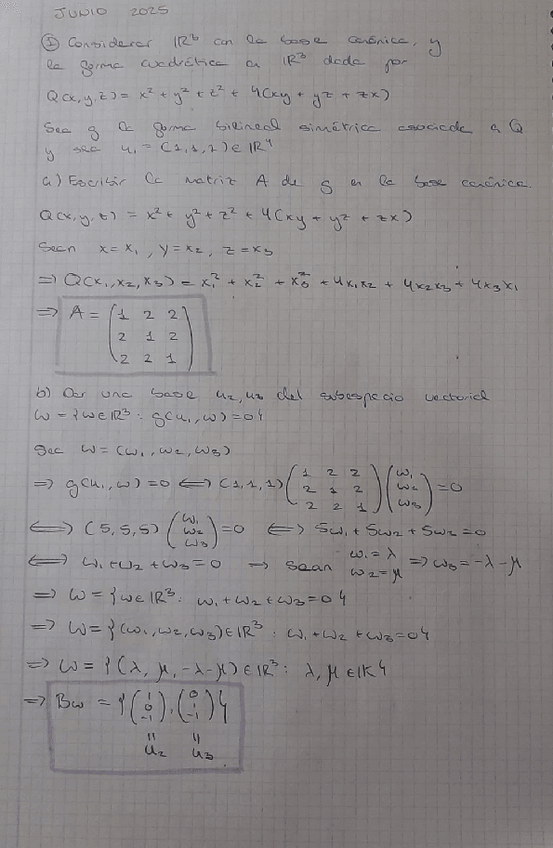 JUNIO 2025
① Considerar ℝ³ con la base canónica, y
la forma cuadrática en ℝ³ dada por
Q(x,y,z) = x² + y² + z² + 4(xy + yz + zx)
Sea g la forma bilineal simétrica asociada a Q
y sea u₁ = (1,1,1) ∈ ℝ⁴
a) Escribir la matriz A de g en la base canónica.
Q(x,y,z) = x² + y² + z² + 4(xy + yz + zx)
Sean x = x₁, y = x₂, z = x₃
⇒ Q(x₁,x₂,x₃) = x₁² + x₂² + x₃² + 4x₁x₂ + 4x₂x₃ + 4x₃x₁
⇒ A = (1 2 2
2 1 2
2 2 1)
b) Dar una base u₂, u₃ del subespacio vectorial
W = {w ∈ ℝ³ : g(u₁, w) = 0}
Sea w = (w₁, w₂, w₃)
⇒ g(u₁, w) = 0 ⟺ (1,1,1) (1 2 2
2 1 2
2 2 1) (w₁
w₂
w₃) = 0
⟺ (5,5,5) (w₁
w₂
w₃) = 0 ⟺ 5w₁ + 5w₂ + 5w₂ = 0
⟺ w₁ + w₂ + w₃ = 0 → Sean w₁ = λ
w₂ = μ ⇒ w₃ = -λ - μ
⇒ W = {w ∈ ℝ³ : w₁ + w₂ + w₃ = 0}
⇒ W = {(w₁, w₂, w₃) ∈ ℝ³ : w₁ + w₂ + w₃ = 0}
⇒ W = {(λ, μ, -λ-μ) ∈ ℝ³ : λ, μ ∈ 𝕂}
⇒ Bw = {(1
0
-1), (0
1
-1)}
" "
u₂ u₃